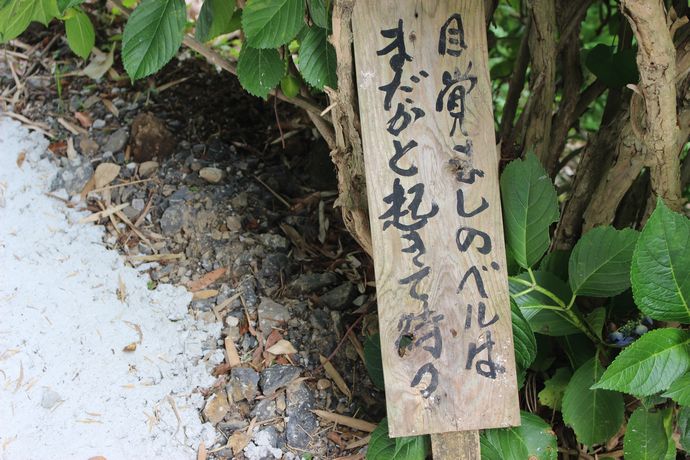 目覚ましのベルは
まだかと起きて待つ